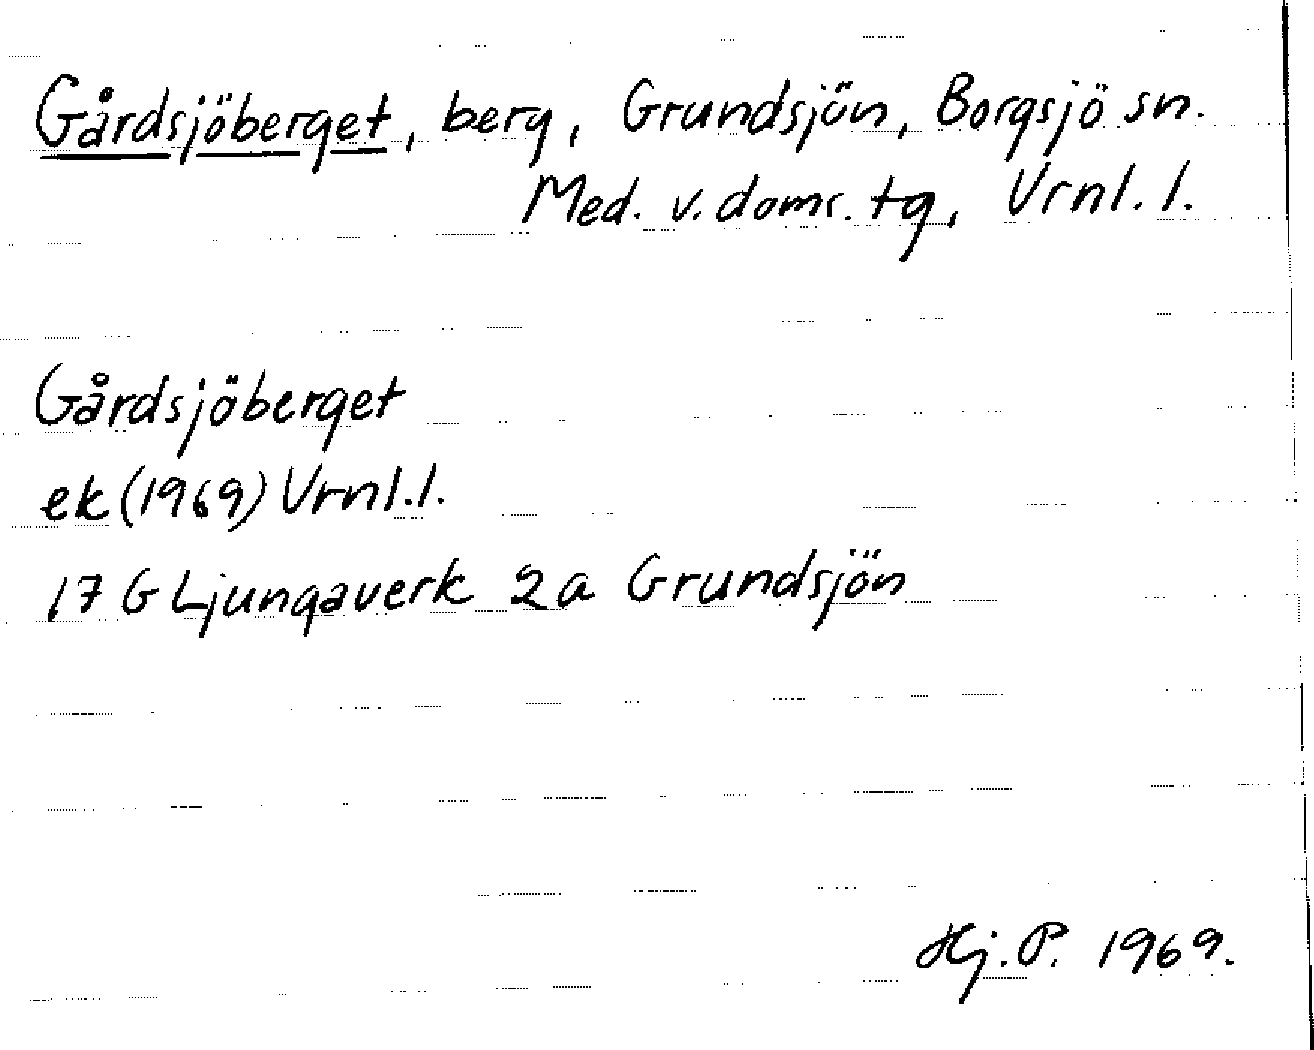 Gårdsjöberget, berg, Grundsjön, Borgsjö sn.
Med. v. doms. tg, Vrnl. l.
Gårdsjöberget
ek (1969) Vrnl. l.
17 G Ljungaverk 2a Grundsjön
Hj. P. 1969.